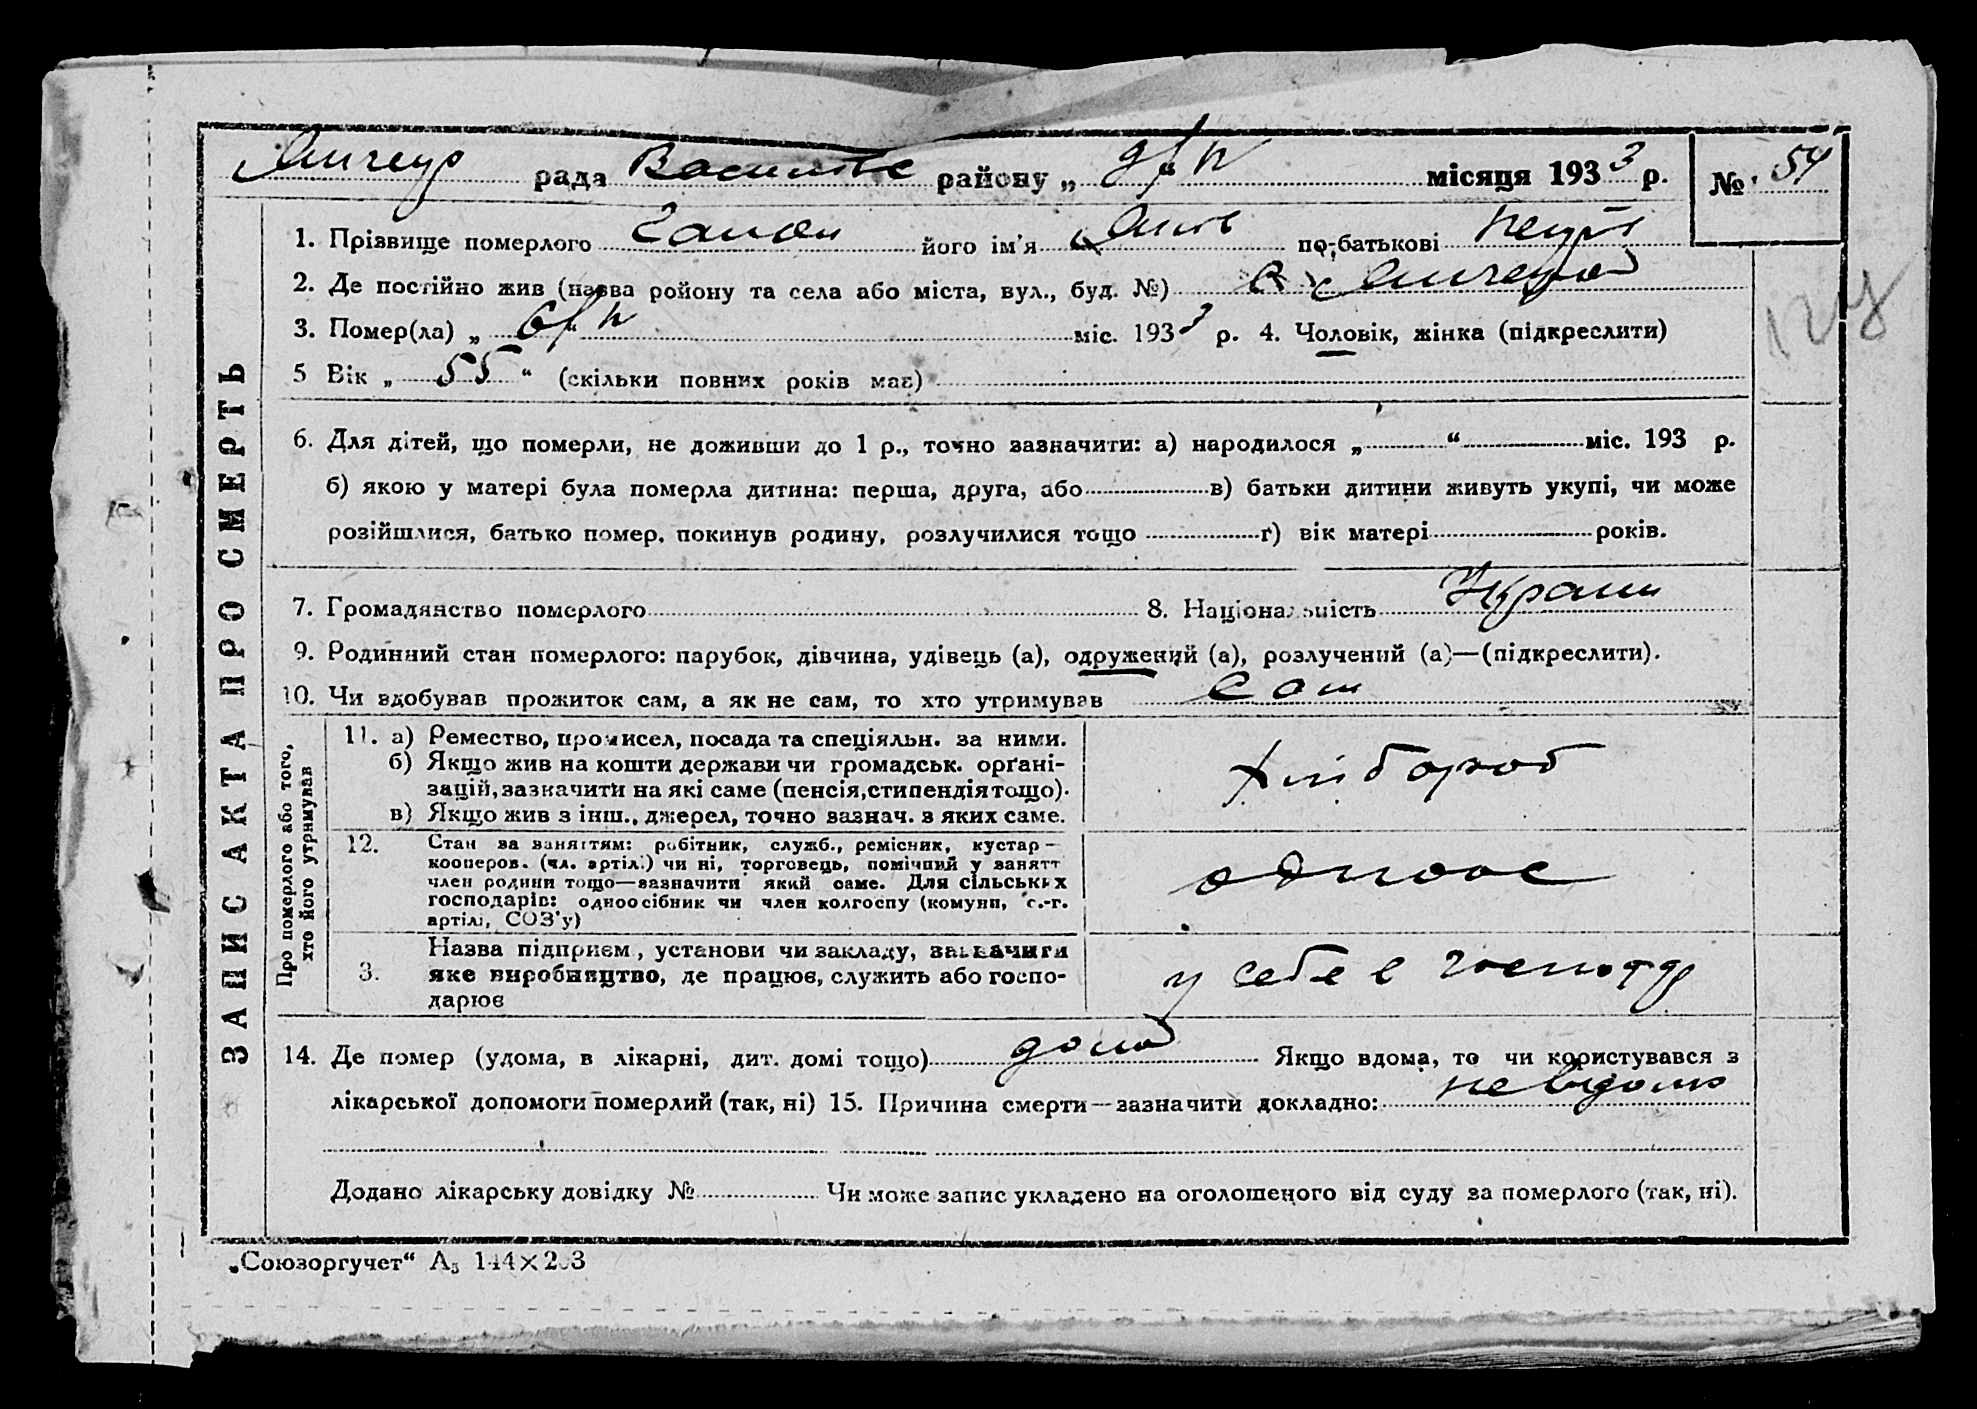 рада Василівс району „ 9/IV “ місяця 1933 р. № 54
1. Прізвище померлого Гапон його ім'я Яків по-батькові
2. Де постійно жив (назва ройону та села або міста, вул., буд. №) с.
3. Помер(ла) „ 6/IV “ міс. 1933 р. 4. Чоловік, жінка (підкреслити)
5 Вік „ 55 “ (скільки повних років має)
6. Для дітей, що померли, не доживши до 1 р., точно зазначити: а) народилося „ “ міс. 193 р.
б) якою у матері була померла дитина: перша, друга, або в) батьки дитини живуть укупі, чи може
розійшлися, батько помер, покинув родину, розлучилися тощо ґ) вік матері років.
7. Громадянство померлого 8. Національність Украин
9. Родинний стан померлого: парубок, дівчина, удівець (а), одружений (а), розлучений (а)—(підкреслити).
10. Чи здобував прожиток сам, а як не сам, то хто утримував сам
ЗАПИС АКТА ПРО СМЕРТЬ
Про померлого або того,
хто його утримував
11. а) Ремество, промисел, посада та спеціяльн. за ними.
б) Якщо жив на кошти держави чи громадськ. орґані-
зацій, зазначити на які саме (пенсія, стипендія тощо).
в) Якщо жив з інш., джерел, точно зазнач. з яких саме.
хлібороб
12. Стан за заняттям: робітник, служб., ремісник, кустар —
кооперов. (чл. артілі) чи ні, торговець, помічний у занятт
член родини тощо—зазначити який саме. Для сільських
господарів: одноосібник чи член колгоспу (комуни, с.-г.
артілі, СОЗ'у)
одноос
3. Назва підприєм, установи чи закладу, зазначити
яке виробництво, де працює, служить або госпо-
дарює
у себе в господ
14. Де помер (удома, в лікарні, дит. домі тощо) дома Якщо вдома, то чи користувався з
лікарської допомоги померлий (так, ні) 15. Причина смерти—зазначити докладно: невідомо
Додано лікарську довідку № Чи може запис укладено на оголошеного від суду за померлого (так, ні).
„Союзоргучет“ А₅ 144×203